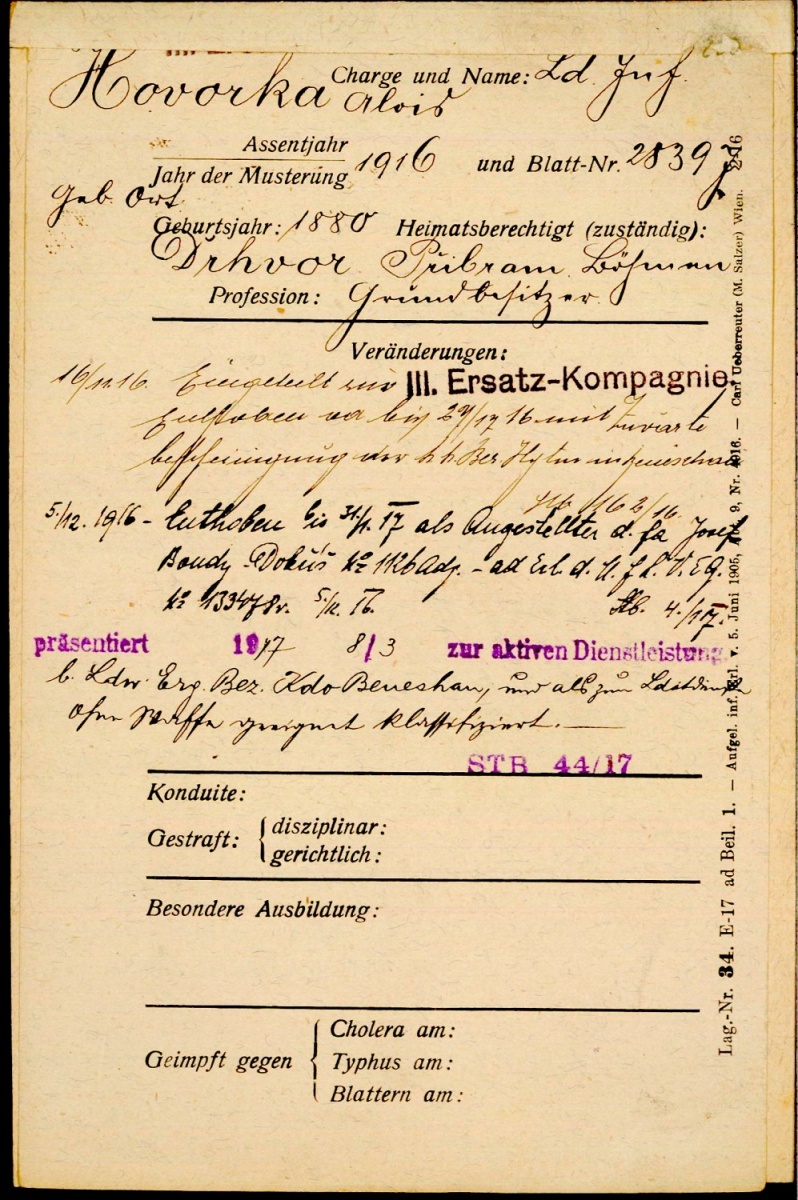 Charge und Name: Ld. Inf.
Hovorka Alois
Assentjahr
Jahr der Musterung 1916 und Blatt-Nr. 2839
Geb. Ort
Geburtsjahr: 1880 Heimatsberechtigt (zuständig):
Drhvor Přibram Böhmen
Profession: Grundbesitzer.
Veränderungen:
Eingeteilt zur III. Ersatz-Kompagnie.
Enthoben bis 16 mit
der k.k. Bez.
5/12. 1916 - Enthoben bis 31/1. 17 als Angestellter d. Fa Josef
Bondy - Dobřiš No 1126 Adj. - ad Erl. d. M. f. L. V.
No 5/12. 16. 4./17.
präsentiert 1917 8/3 zur aktiven Dienstleistung
b. Ldw. Erg. Bez. Kdo Beneschau, und als zum
ohne Waffe geeignet klassifiziert.
STB 44/17
Konduite:
Gestraft: disziplinar:
gerichtlich:
Besondere Ausbildung:
Geimpft gegen Cholera am:
Typhus am:
Blattern am:
Lag.-Nr. 34. E-17 ad Beil. 1. — Aufgel. inf. v. 5. Juni 1905, 9, Nr. 1916. — Carl Ueberreuter (M. Salzer) Wien.